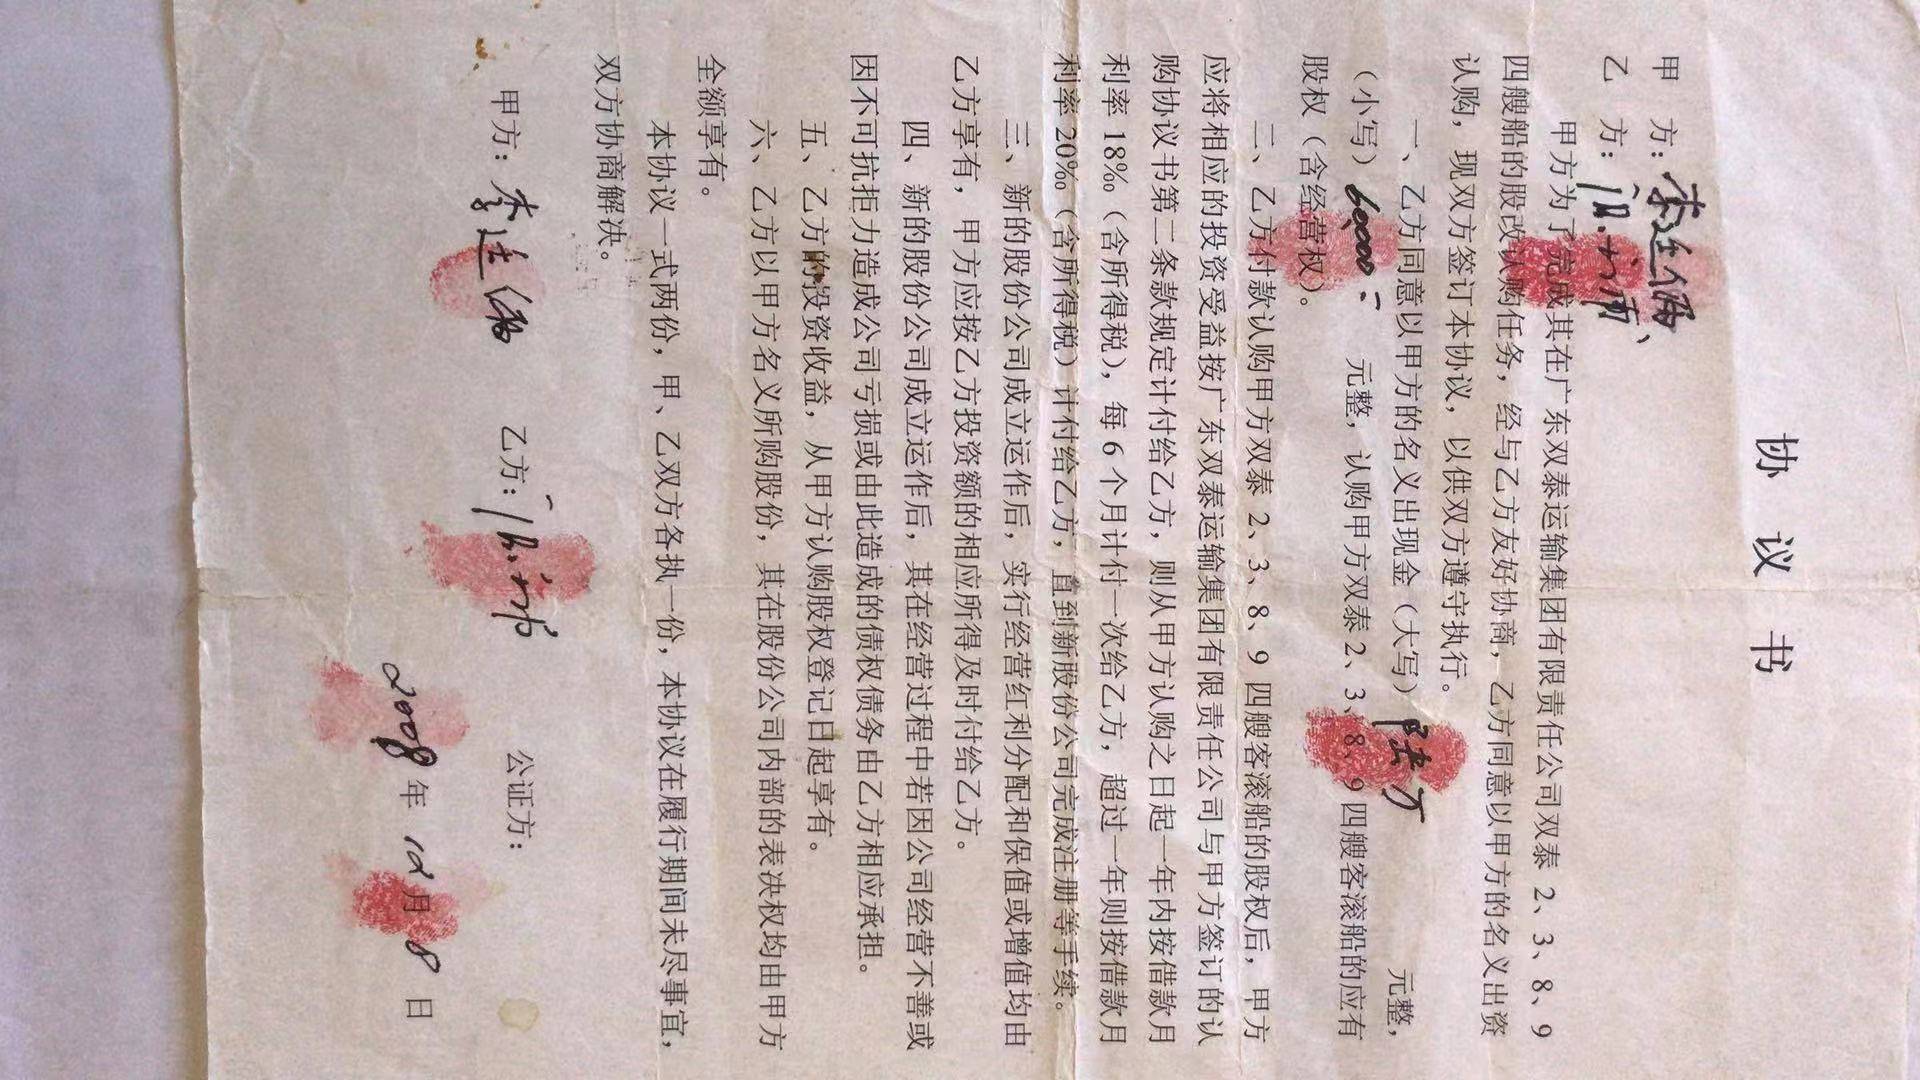 协议书
甲　方：李廷俪
乙　方：
甲方为了完成其在广东双泰运输集团有限责任公司双泰 2、3、8、9
四艘船的股改认购任务，经与乙方友好协商，乙方同意以甲方的名义出资
认购，现双方签订本协议，以供双方遵守执行。
一、乙方同意以甲方的名义出现金（大写）陆万　元整，
（小写）60000.-　元整，认购甲方双泰 2、3、8、9 四艘客滚船的应有
股权（含经营权）。
二、乙方付款认购甲方双泰 2、3、8、9 四艘客滚船的股权后，甲方
应将相应的投资受益按广东双泰运输集团有限责任公司与甲方签订的认
购协议书第二条款规定计付给乙方，则从甲方认购之日起一年内按借款月
利率 18‰（含所得税），每 6 个月计付一次给乙方，超过一年则按借款月
利率 20‰（含所得税）计付给乙方，直到新股份公司完成注册等手续。
三、新的股份公司成立运作后，实行经营红利分配和保值或增值均由
乙方享有，甲方应按乙方投资额的相应所得及时付给乙方。
四、新的股份公司成立运作后，其在经营过程中若因公司经营不善或
因不可抗拒力造成公司亏损或由此造成的债权债务由乙方相应承担。
五、乙方的投资收益，从甲方认购股权登记日起享有。
六、乙方以甲方名义所购股份，其在股份公司内部的表决权均由甲方
全额享有。
本协议一式两份，甲、乙双方各执一份，本协议在履行期间未尽事宜，
双方协商解决。
甲方：李廷俪　乙方：　公证方：
2008年12月8日